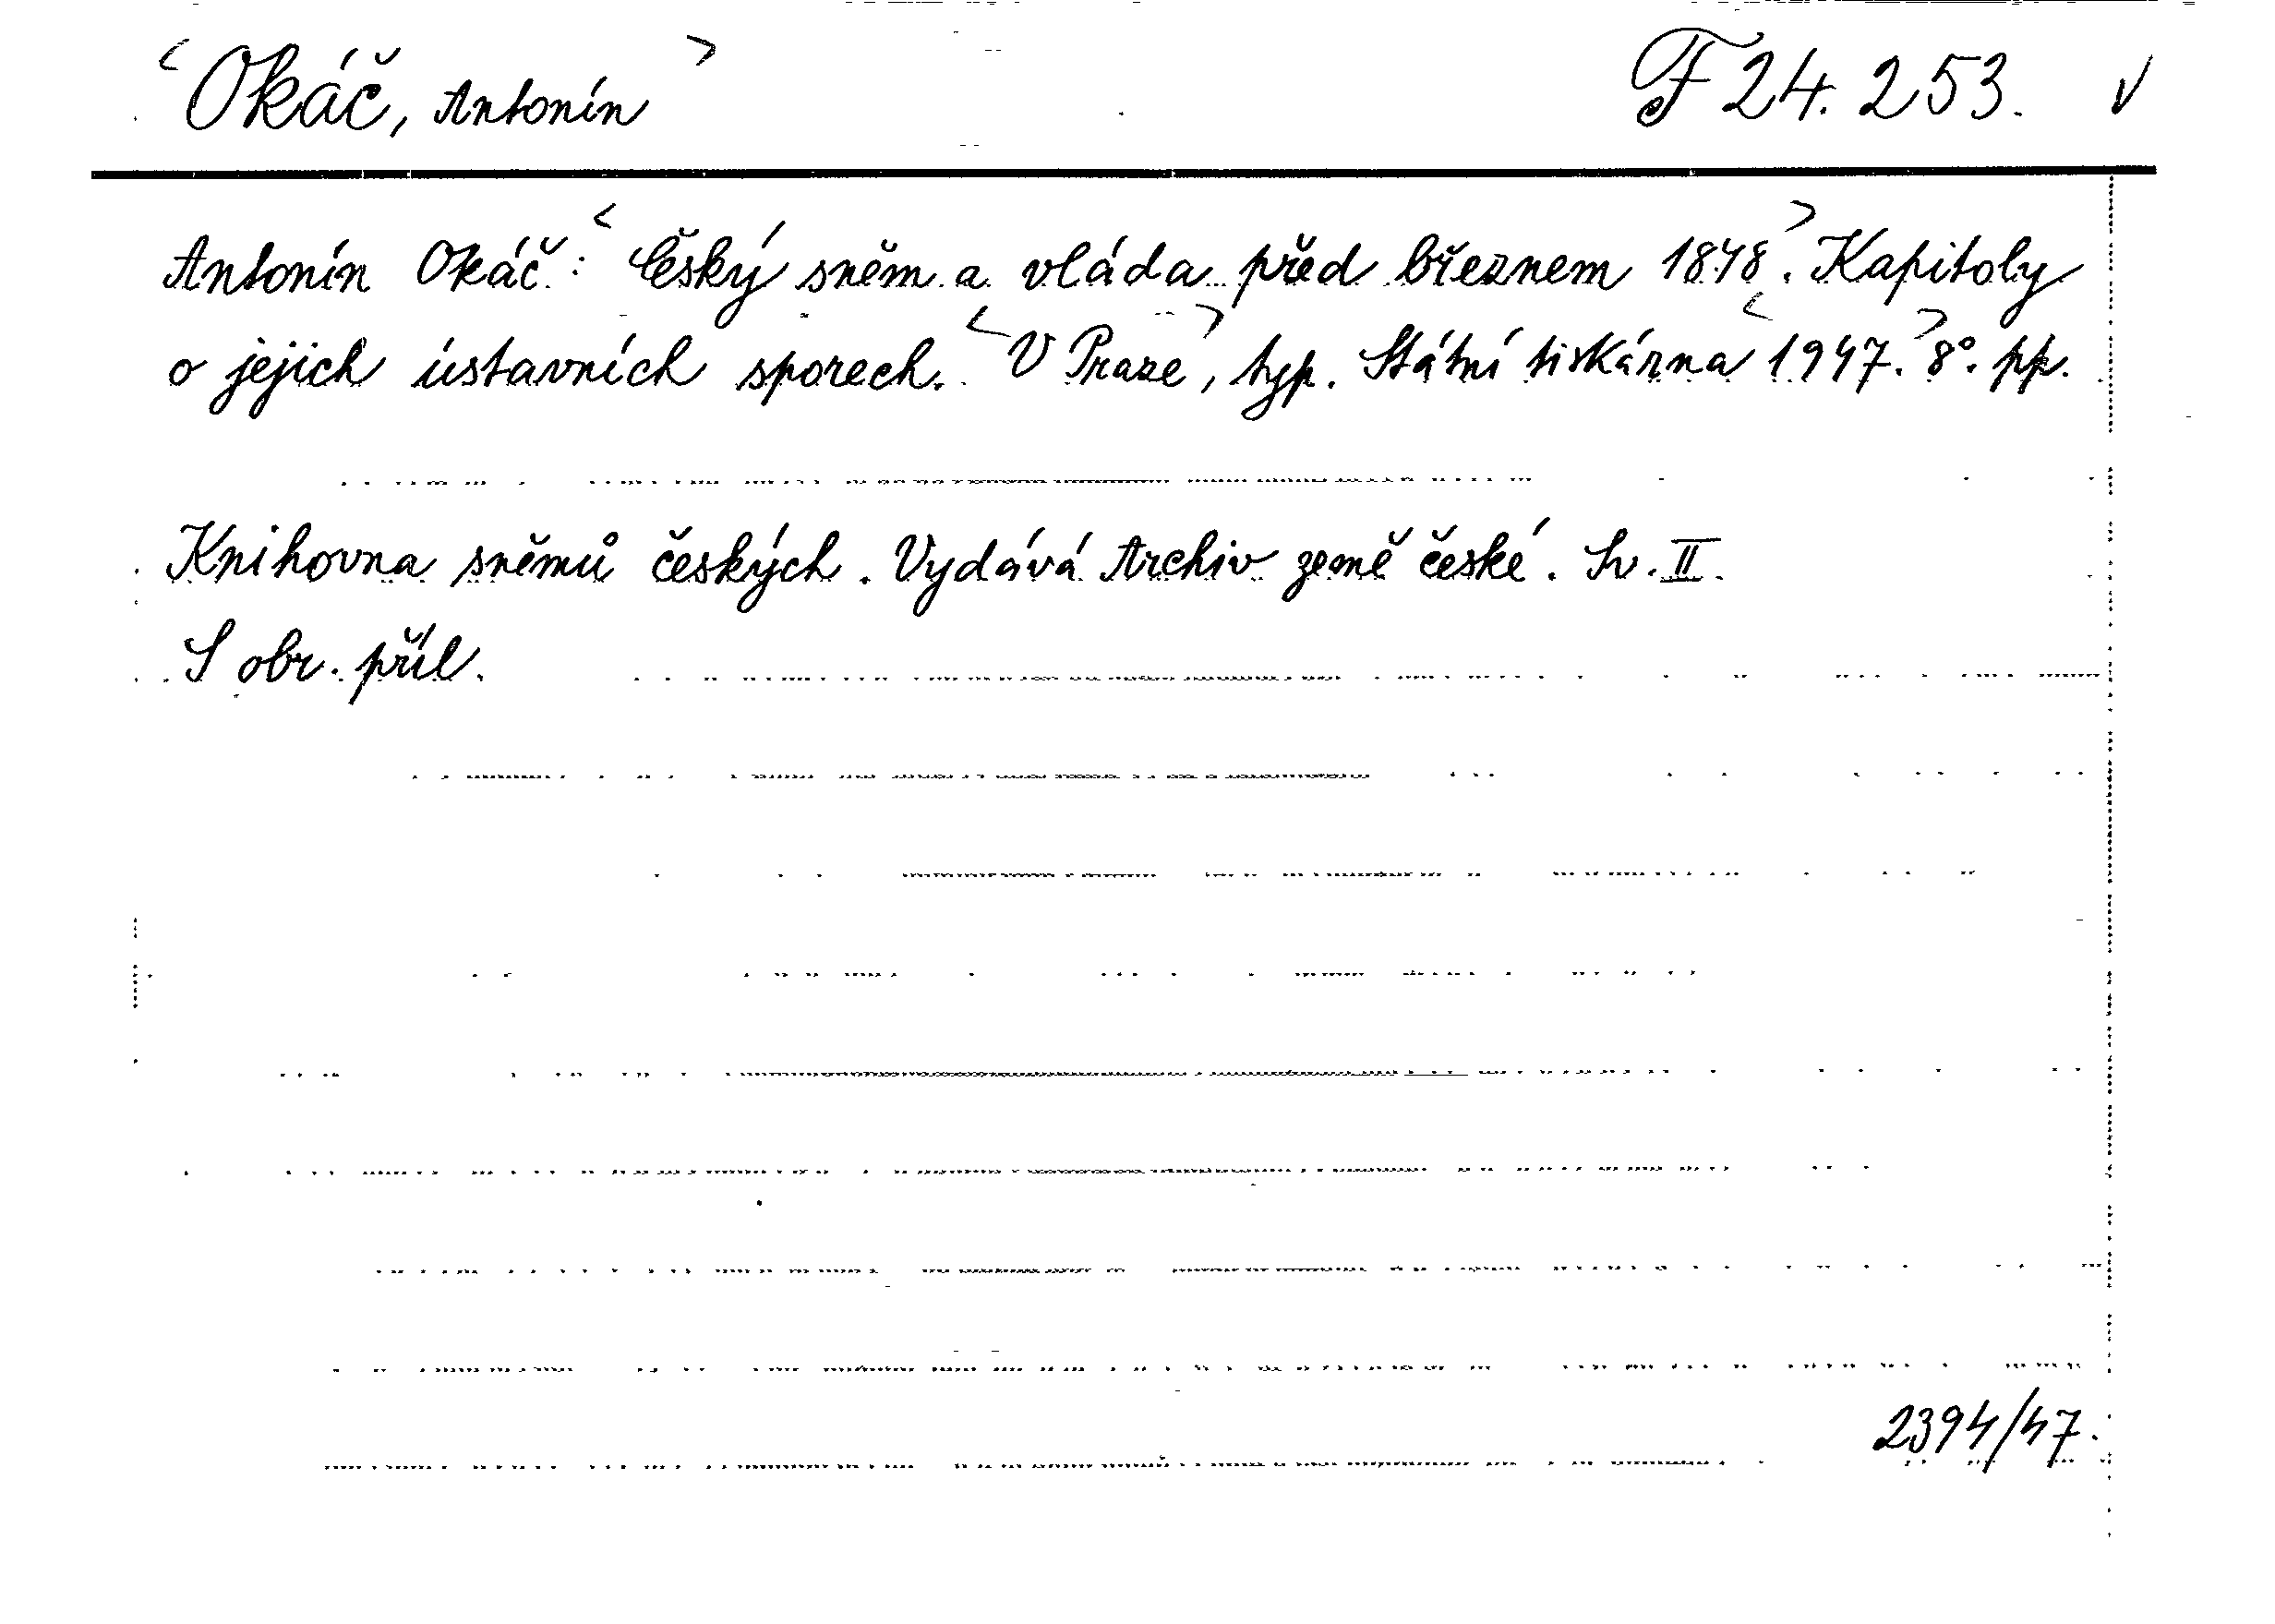 <Okáč, Antonín> F 24.253. √
Antonín Okáč: <Český sněm a vláda před březnem 1848>. Kapitoly
o jejich ústavních sporech. <V Praze>, typ. Státní tiskárna <1947.> 8°. pp.
Knihovna sněmů českých. Vydává Archiv země české. Sv. II.
S obr. příl.
2394/47.